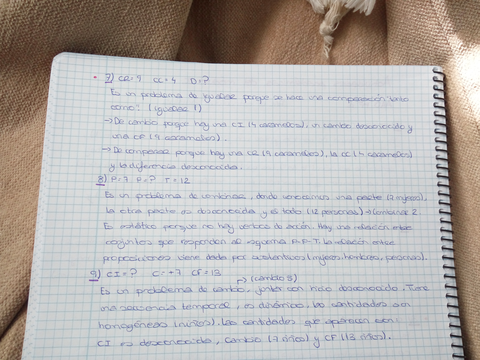 7) CR=9 CC=4 D=?
Es un problema de igualar porque se hace una comparación tanto
como: (igualar 1)
→ De cambio porque hay una CI (4 caramelos), un cambio desconocido y
una CF (9 caramelos).
→ De comparar porque hay una CR (9 caramelos), la CC (4 caramelos)
y la diferencia desconocida.
8) P=7 P=? T=12
Es un problema de combinar, donde conocemos una parte (7 mujeres),
la otra parte es desconocida y el todo (12 personas) → Combinar 2.
Es estático porque no hay verbos de acción. Hay una relación entre
conjuntos que responden al esquema P.P.T. La relación entre
proposiciones viene dada por (mujeres, hombres, personas).
9) CI=? C=+7 CF=13
→ (cambio 5)
Es un problema de cambio, juntar con inicio desconocido. Tiene
una secuencia temporal, es dinámico, las cantidades son
homogéneas (niños). Las cantidades que aparecen son:
CI es desconocida, cambio (7 niños) y CF (13 niños).